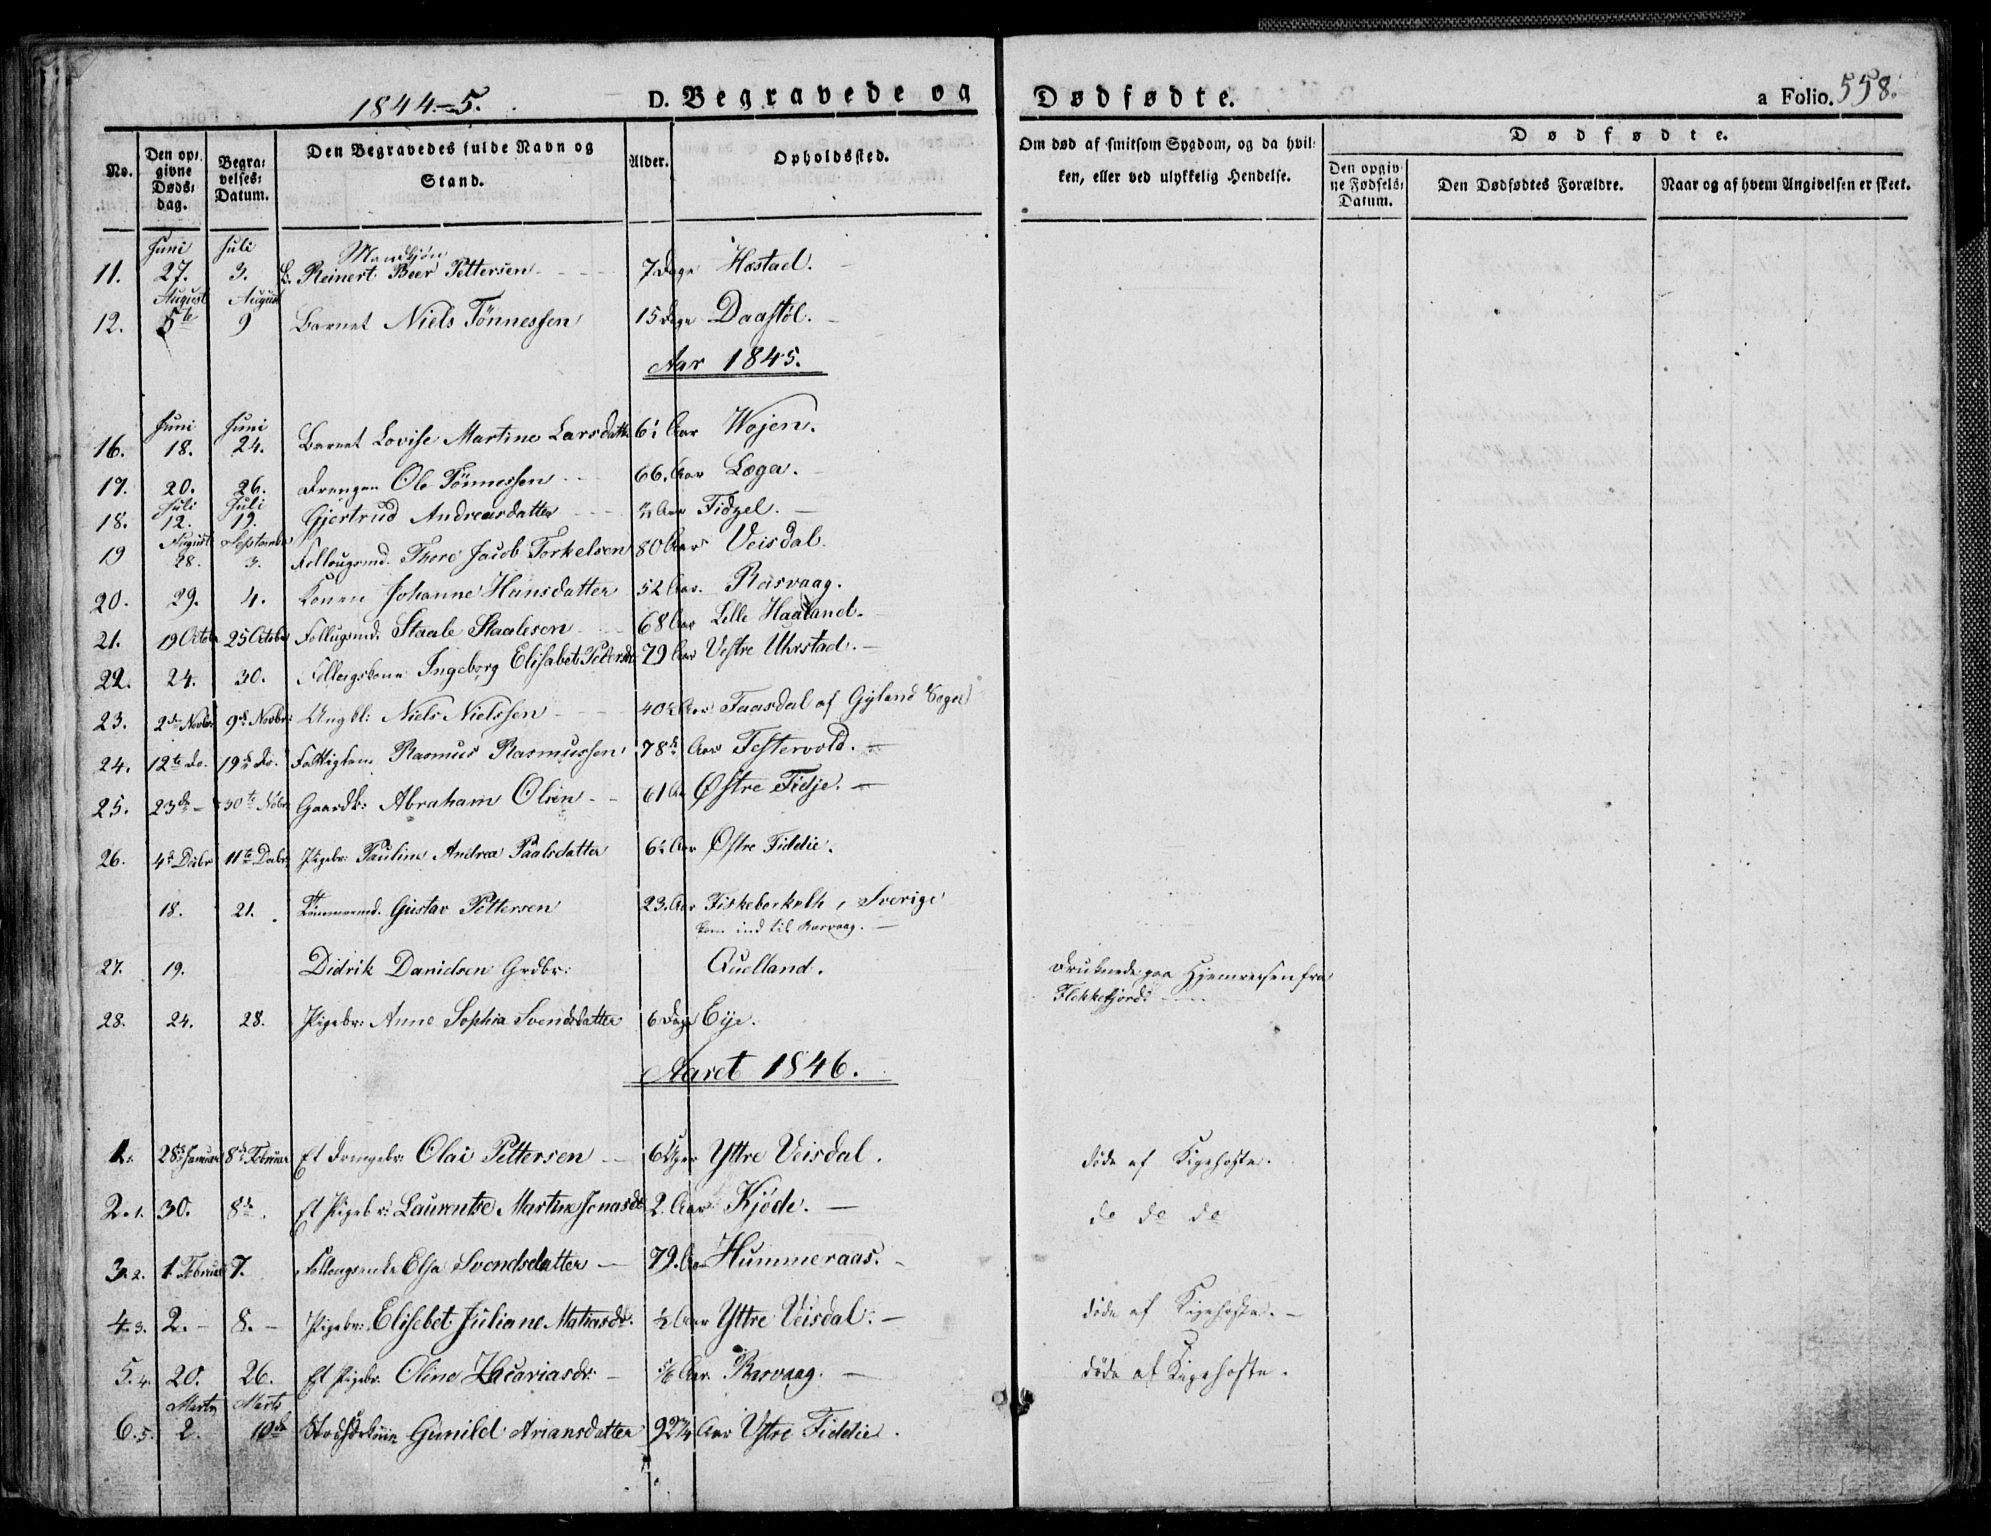 1844-5.
D. Begravede og Dødfødte.
a Folio. 558.
No.
Den opgivne Dødsdag.
Begravelses-Datum.
Den Begravedes fulde Navn og Stand.
Alder.
Opholdssted.
Om død af smitsom Sygdom, og da hvilken, eller ved ulykkelig Hendelse.
Dødfødte.
Den opgivne Fødsels-Datum.
Den Dødfødtes Forældre.
Naar og af hvem Angivelsen er skeet.
Juni Juli
11. 27. 3. Reinert Beer Pettersen 7 Dage Hæstad.
August August
12. 5te 9 Barnet Niels Tönnessen 15 Dage Daastöl.
Aar 1845.
Juni Juni
16. 18. 24. Barnet Lovise Martine Larsdatter Aar Wojen.
17. 20. 26. Drengen Ole Tönnessen 66. Aar Loga.
Juli Juli
18. 12. 19. Gjertrud Andreasdatter Aar Fidzel.
August September
19 28. 3. Thore Jacob Torkelsen 80 Aar Veisdal.
20. 29. 4. Konen Johanne Hansdatter 52 Aar. Rasvaag.
21. 19 October 25 October Staale Staalesen 68 Aar Lille Haaland.
22. 24. 30. Ingeborg Elisabet Petersdtr 79 Aar Vestre Uhrstad.
23. 2de Novbr. 9de Novbr. Ungkl: Niels Nielssen 40 Aar Faasdal af Gyland Sogn
24. 12te do. 19de do. Fattiglem Rasmus Rasmussen 78 Aar Festervold.
25. 23de 30te Nvbr Gaardb: Abraham Olsen 61 Aar Østre Fidje.
26. 4de Decbr 11te Decbr Pigebr: Pauline Andrea Paalsdatter 6 Aar Østre Fiddie.
18. 21. Gustav Pettersen 23. Aar Sverige
kom ind til Rasvaag.
27. 19. Didrik Danielsen Grdbr: Quelland.
Druknede paa Hjemreisen fra
Flekkefjord.
28. 24. 28. Pigebr: Anne Sophia Svendsdatter 6 Dage Eye.
Aaret 1846.
1. 28de Januar 8de Februar Et Drengebr: Olai Pettersen 6 Uger Yttre Veisdal.
døde af Kigehoste.
2. 1. 30. 8de. Et Pigebr: Laurentse Martine Jonasdr 2. Aar Kjöde.
do do do
3. 2. 1. Februar 7. Elsa Svendsdatter 79. Aar Hummeraas.
4. 3. 2. 8. Pigebr: Elisebet Juliane Matiasdr. ½ Aar Yttre Veisdal.
døde af Kigehoste.
5. 4. 20. 26. Et Pigebr. Oline Zacariasdr: Aar Rasvaag.
døde af Kigehoste.
Marts Marts
6. 5. 2. 10de Gunild Ariansdatter 92 Aar Ystre Fiddie.